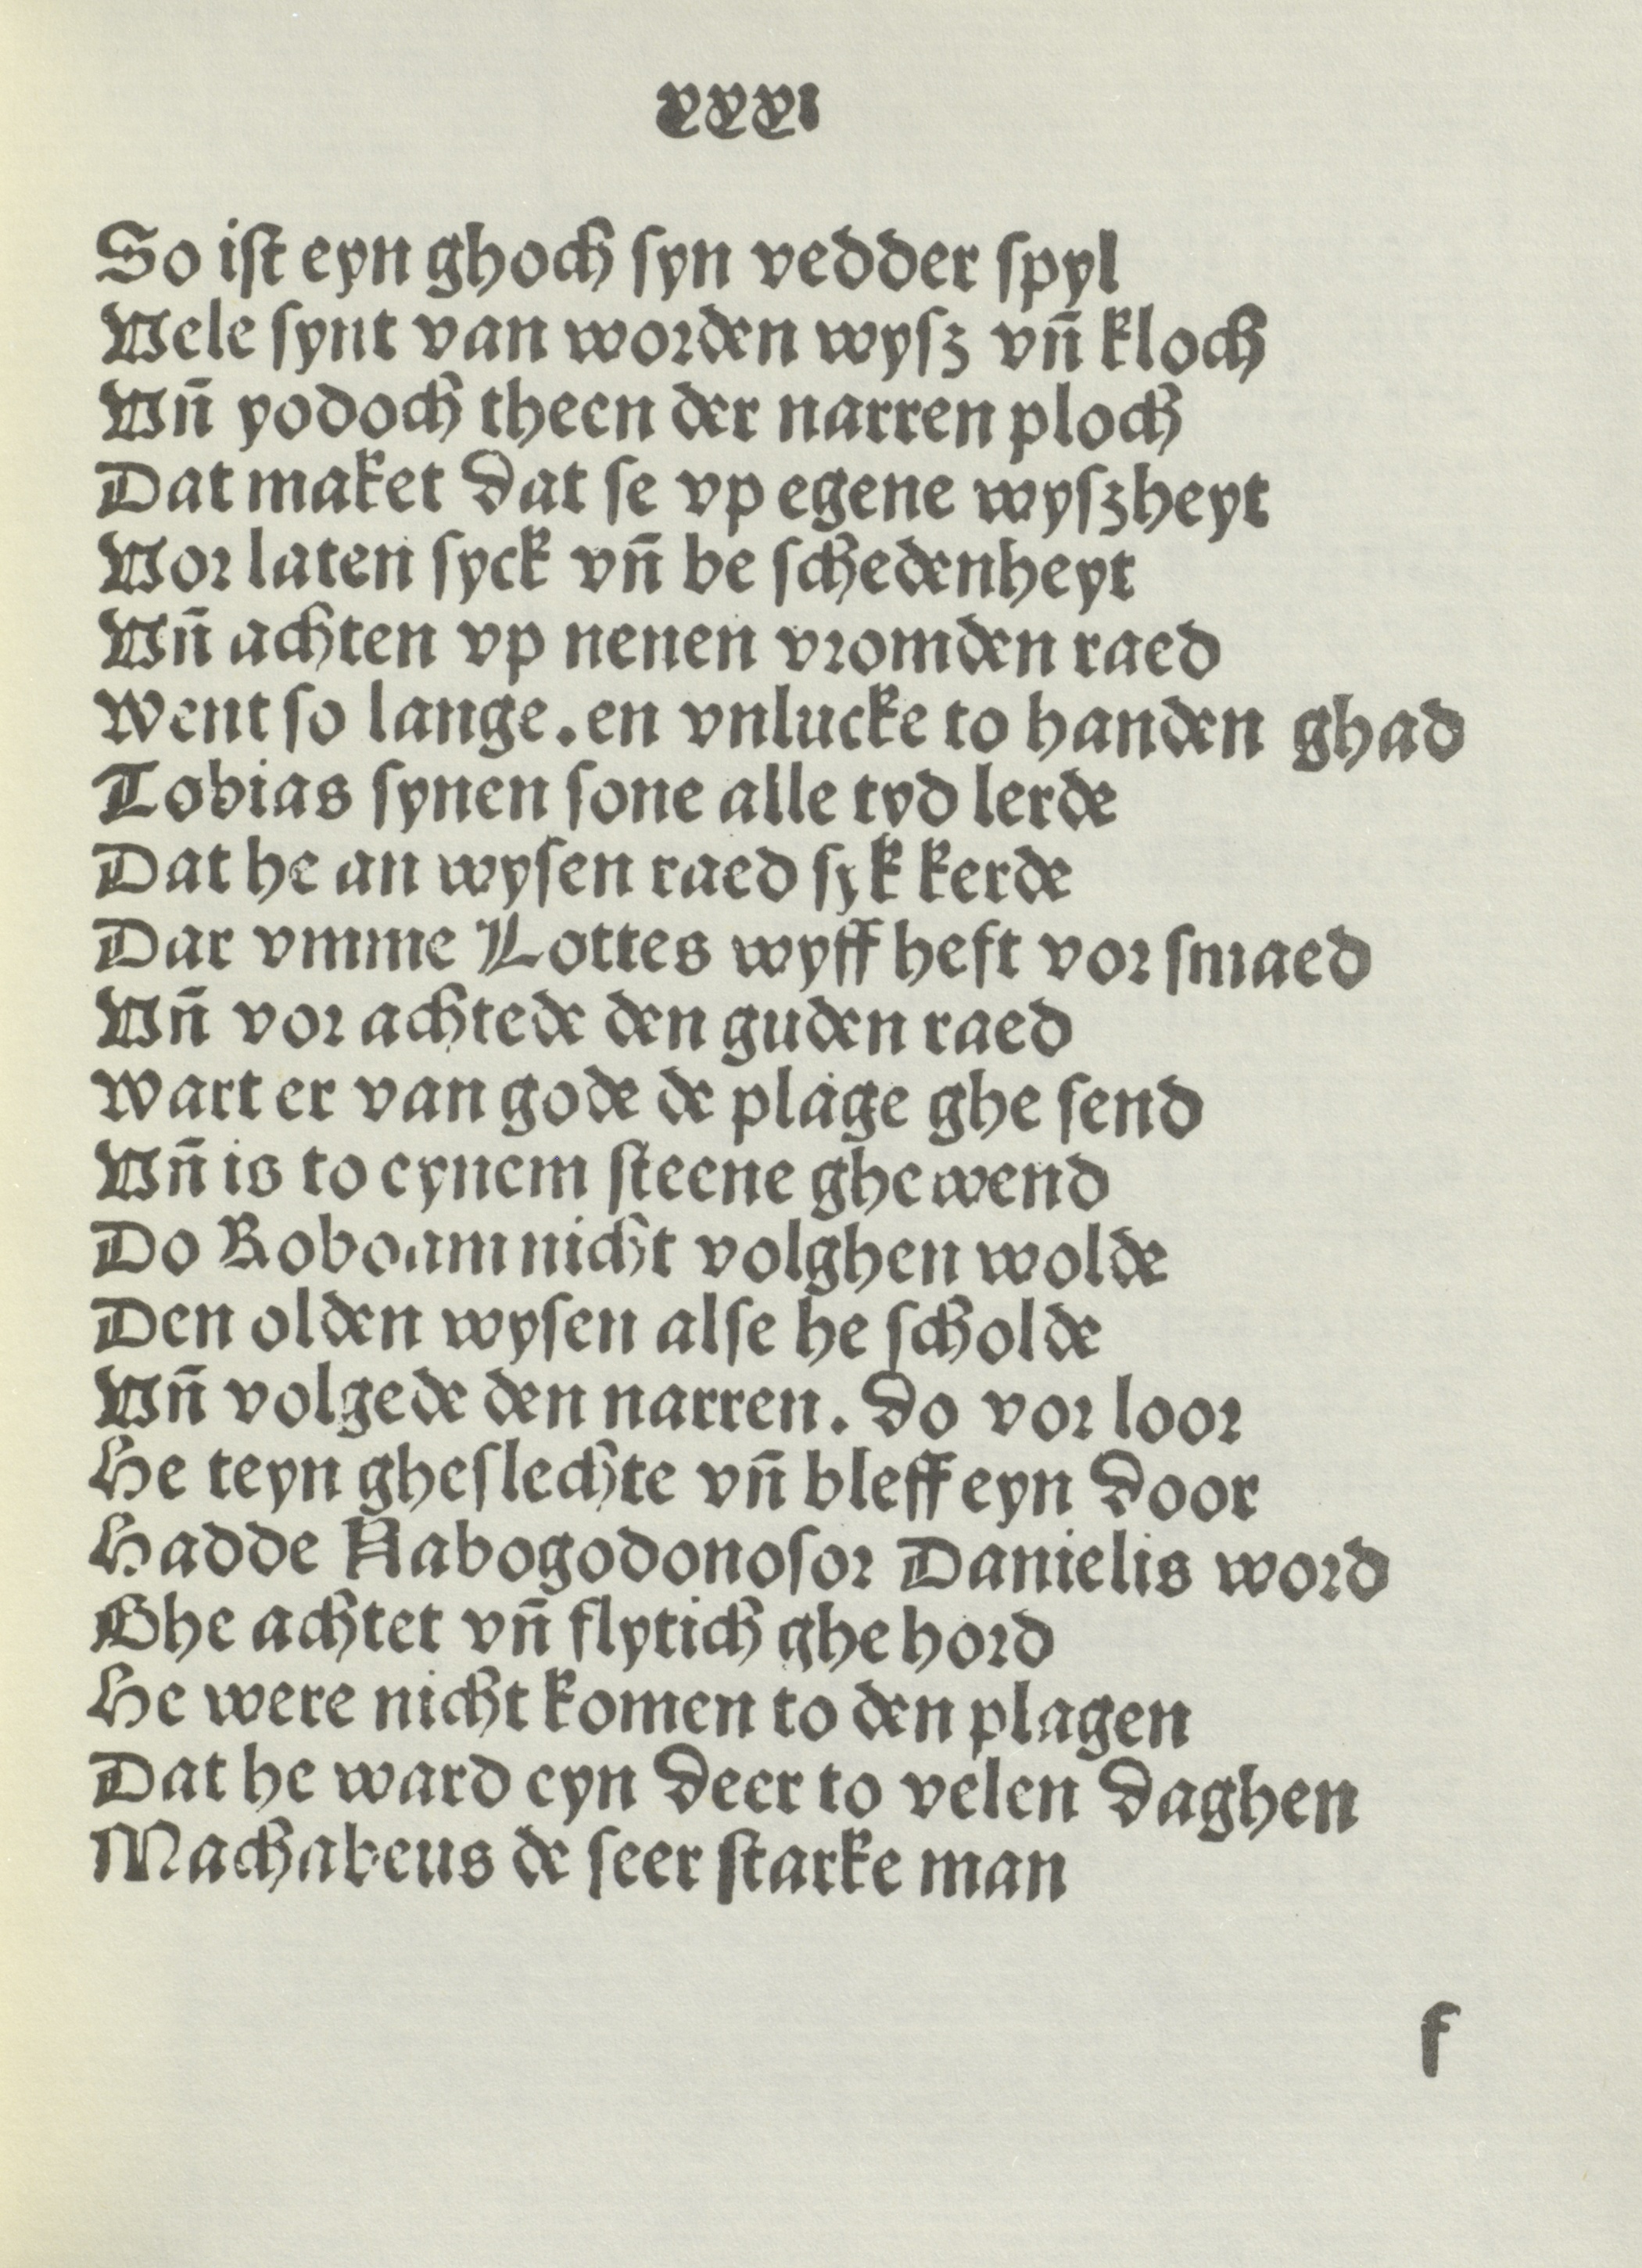 xxxi
So iſt eyn ghoch ſyn vedder ſpyl
Vele ſynt van worden wyſz vn̄ kloch
Vn̄ yodoch theen der narren ploch
Dat maket dat ſe vp egene wyſzheyt
Vor laten ſyck vn̄ be ſchedenheyt
Vn̄ achten vp nenen vromden raed
Went ſo lange.en vnlucke to handen ghad
Tobias ſynen ſone alle tyd lerde
Dat he an wyſen raed ſyk kerde
Dar vmme Lottes wyff heft vor ſmaed
Vn̄ vor achtede den guden raed
Wart er van gode de plage ghe ſend
Vn̄ is to eynem ſteene ghe wend
Do Roboam nicht volghen wolde
Den olden wyſen alſe he ſcholde
Vn̄ volgede den narren. do vor loor
He teyn gheſlechte vn̄ bleff eyn door
Hadde Nabogodonoſor Danielis word
Ghe achtet vn̄ flytich ghe hord
He were nicht komen to den plagen
Dat he ward eyn deer to velen daghen
Machabeus de ſeer ſtarke man
f